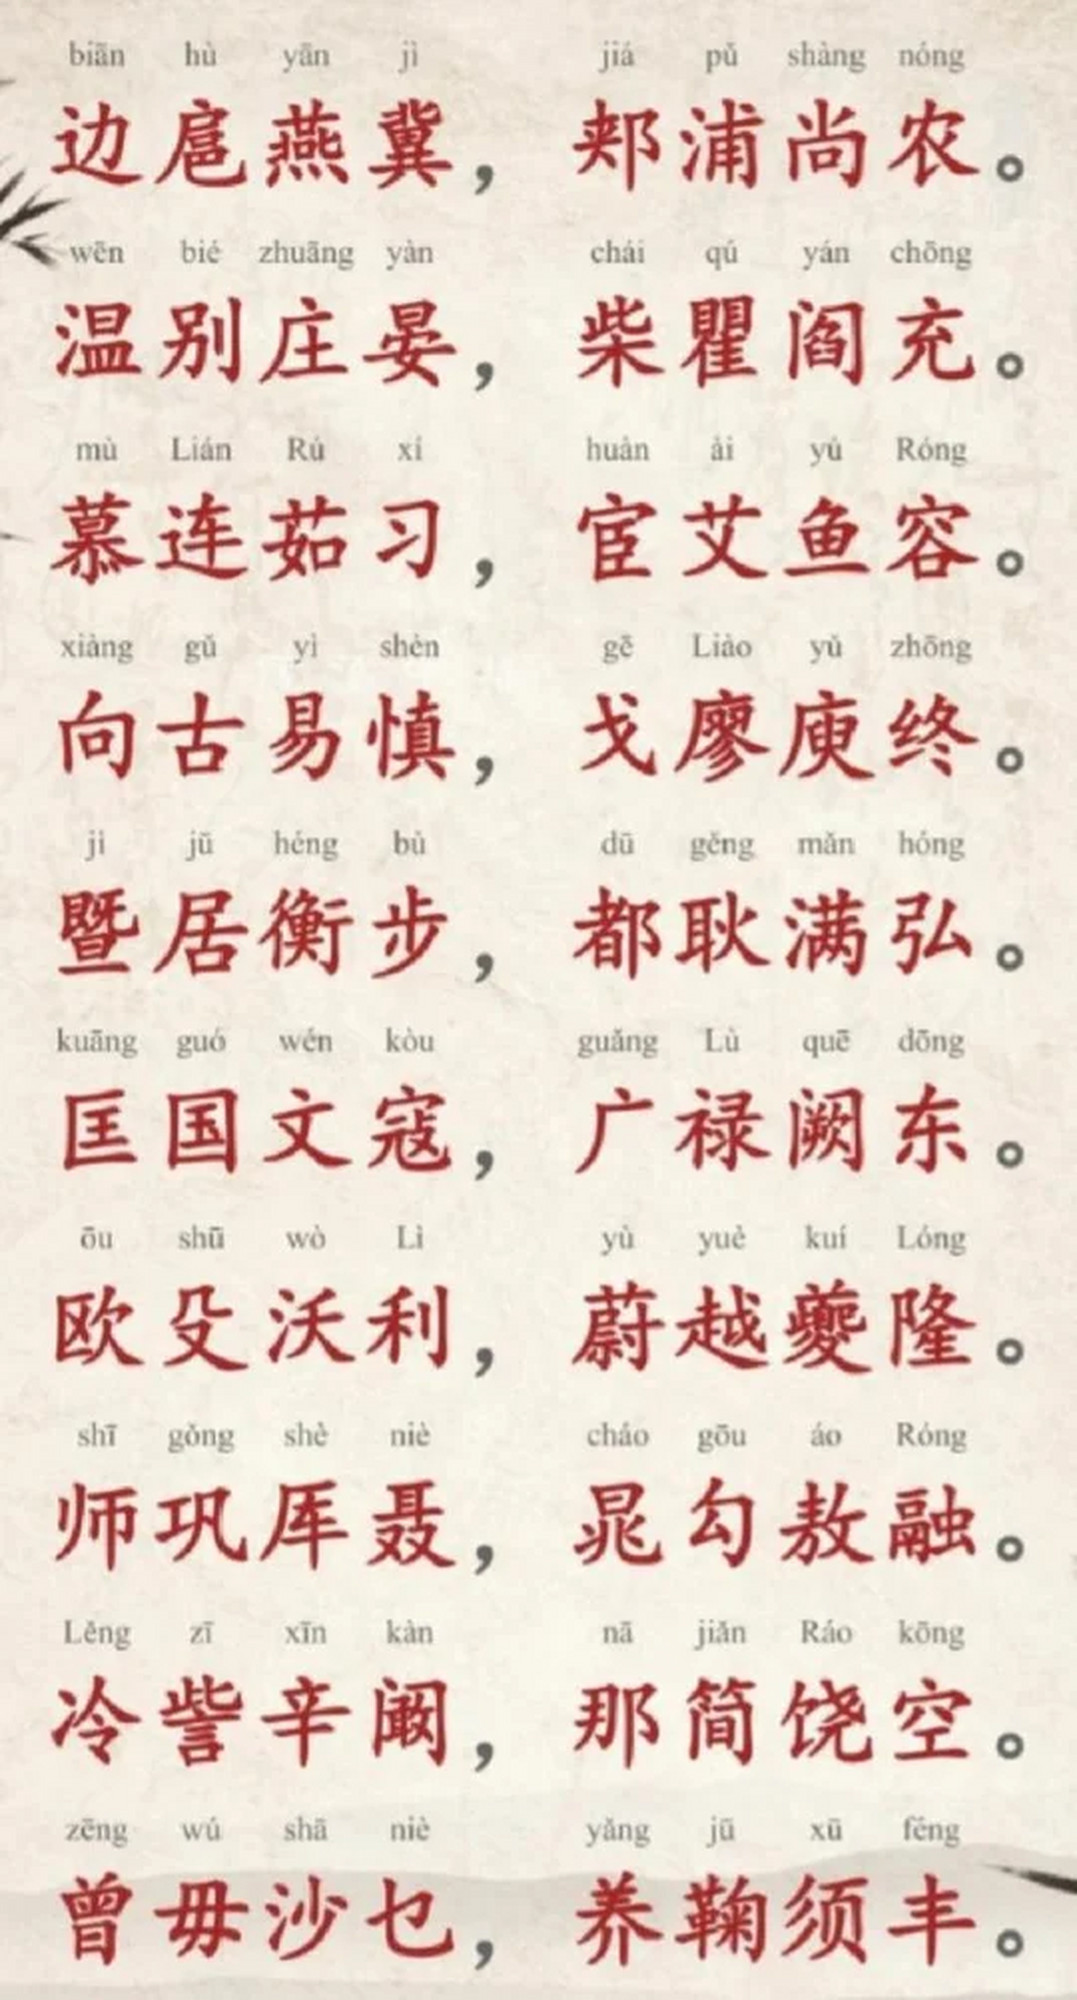 biān hù yān jì jiá pǔ shàng nóng
边扈燕冀，郏浦尚农。
wēn bié zhuāng yàn chái qú yán chōng
温别庄晏，柴瞿阎充。
mù Lián Rú xí huàn ài yú Róng
慕连茹习，宦艾鱼容。
xiàng gǔ yì shèn gē Liào yǔ zhōng
向古易慎，戈廖庾终。
jì jū héng bù dū gěng mǎn hóng
暨居衡步，都耿满弘。
kuāng guó wén kòu guǎng Lù quē dōng
匡国文寇，广禄阙东。
ōu shū wò Lì yù yuè kuí Lóng
欧殳沃利，蔚越夔隆。
shī gǒng shè niè cháo gōu áo Róng
师巩厍聂，晁勾敖融。
Lěng zī xīn kàn nā jiǎn Ráo kōng
冷訾辛阚，那简饶空。
zēng wú shā niè yǎng jū xū fēng
曾毋沙乜，养鞠须丰。